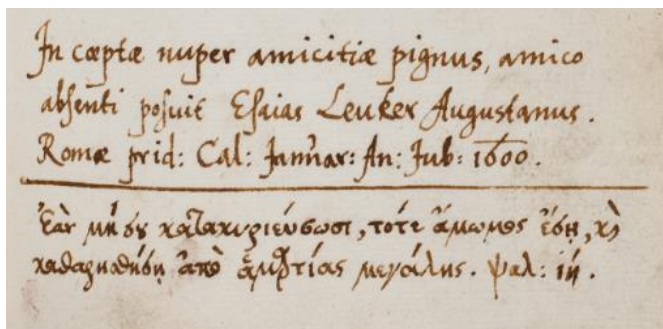 In cœptæ nuper amicitiæ pignus, amico
absenti posuit Esaias Leuker Augustanus.
Romæ prid: Cal: Januar: An: Jub: 1600.
Ἐὰν μή σου κατακυριεύσωσι, τότε ἄμωμος ἔσῃ, κỳ
καθαρισθήσῃ ἀπὸ ἁμαρτίας μεγάλης. ψαλ: ιή.